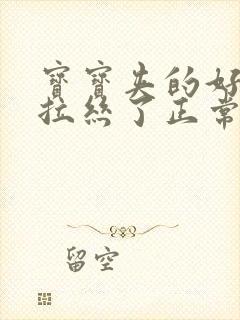 寶寶夹的好
拉絲了正常
留空